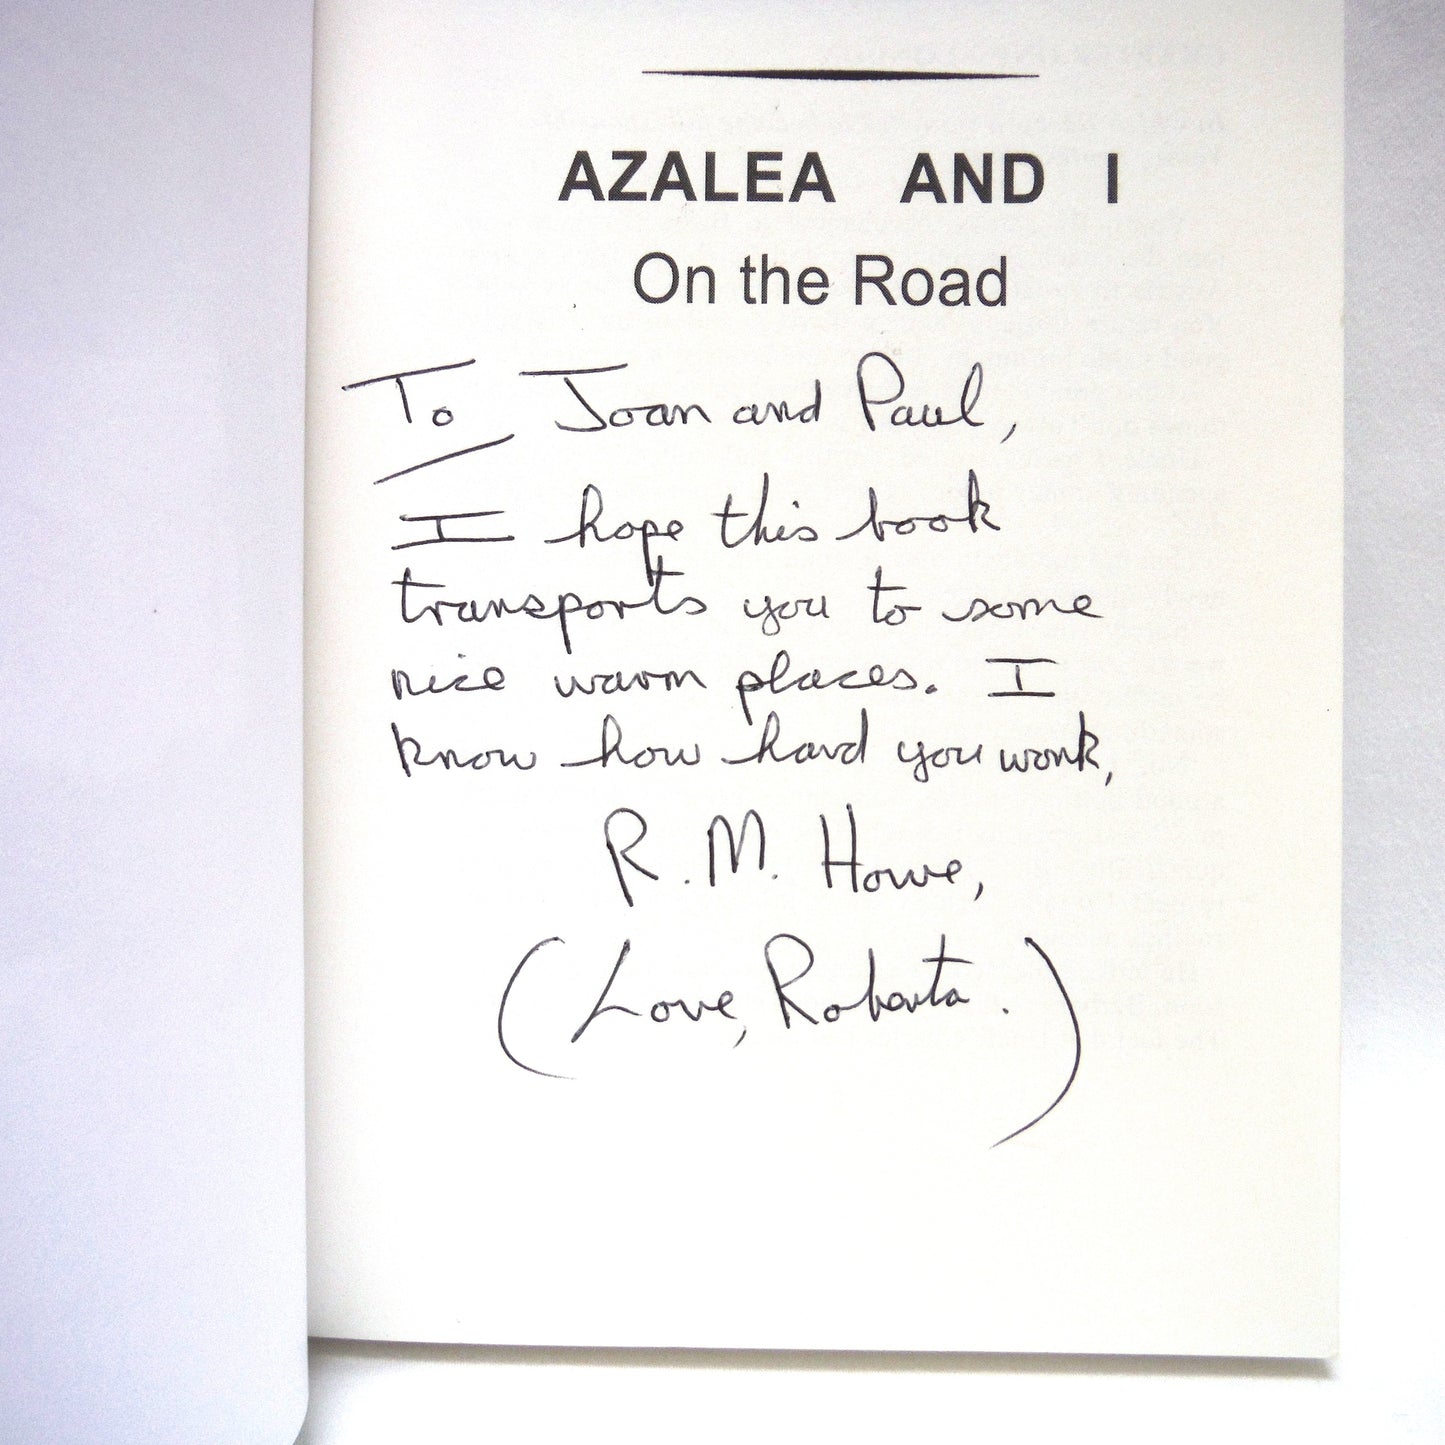 AZALEA AND I
On the Road
To Joan and Paul,
I hope this book
transports you to some
nice warm places. I
know how hard you work,
R. M. Howe,
(Love, Roberta.)